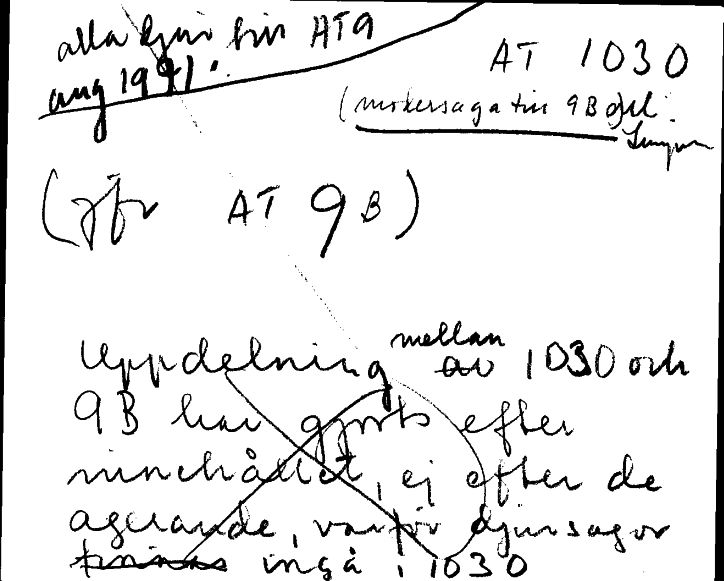 alla djur till AT9
aug 1991.
AT 1030
( till 9B
(jfr AT 9B)
Uppdelning mellan av 1030 och
9B har gjorts efter
innehållet, ej efter de
agerande, varför djursagor
finnas ingå i 1030